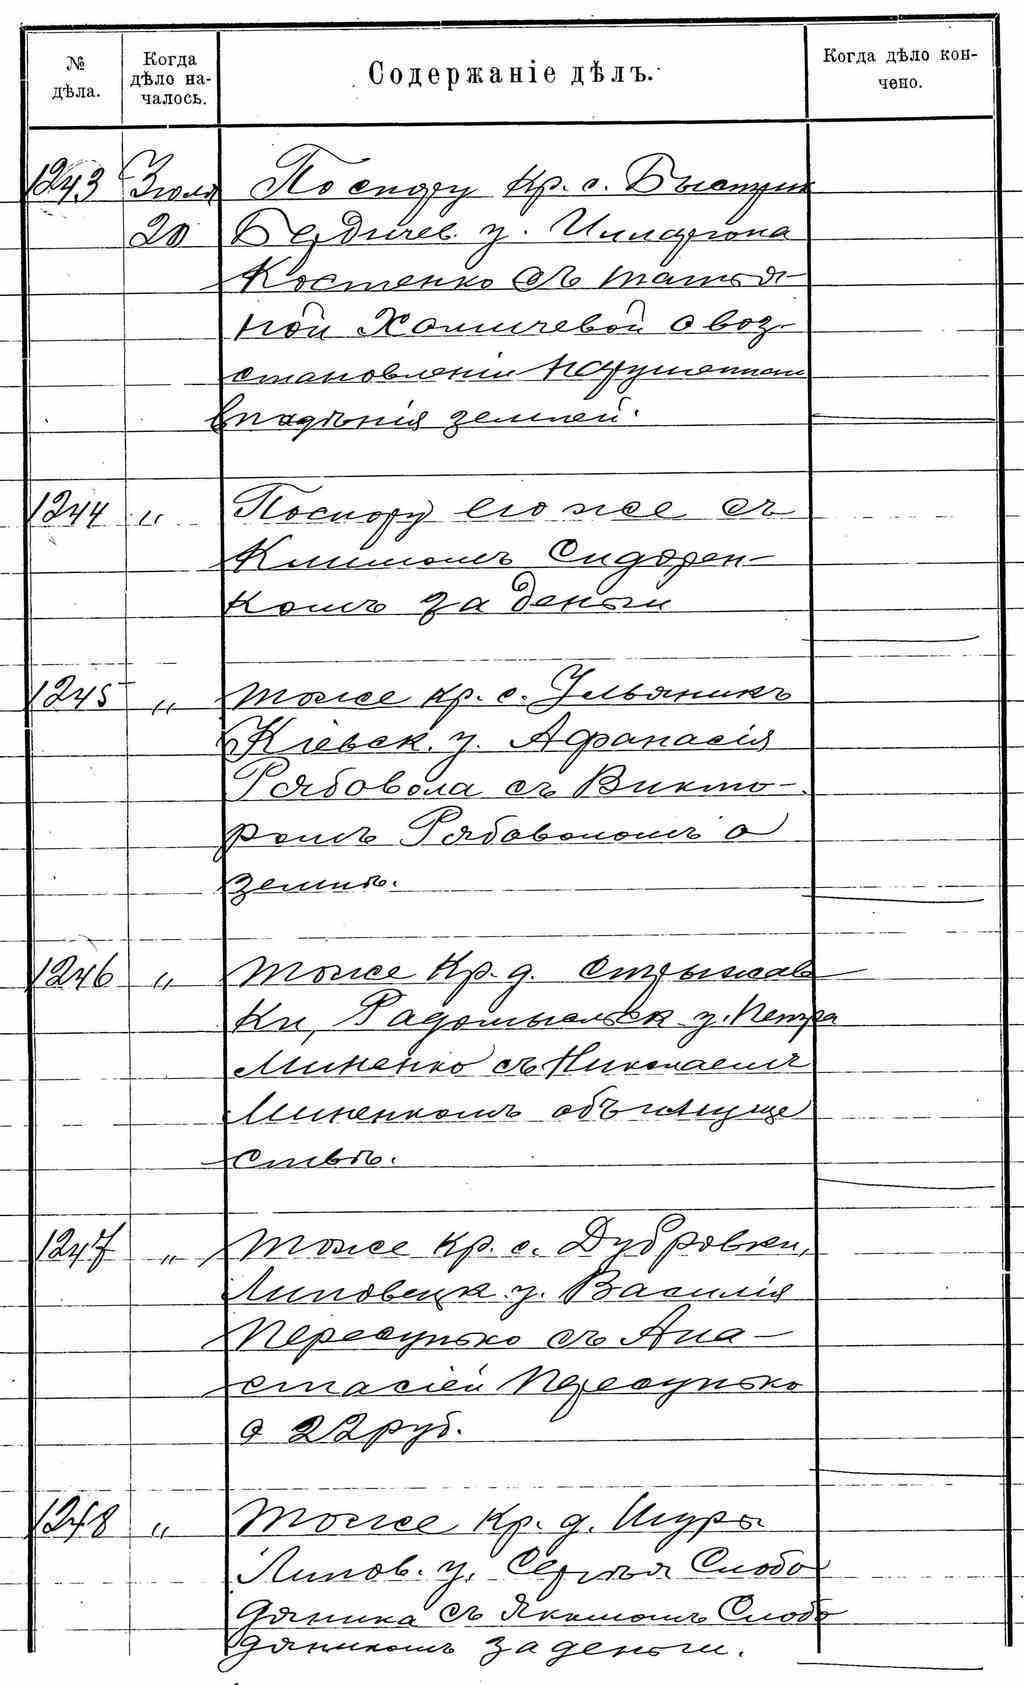 № дѣла.
Когда дѣло на-
чалось.
Содержаніе дѣлъ.
Когда дѣло кон-
чено.
1243 Іюля По спору кр. с. Быстрик
20 Бердичев. у. Илларіона
Костенко съ Татья-
ной Хомичевой о воз-
становленіи нарушеннаго
владѣнія землей.
1244 " По спору его же съ
Климомъ Сидорен-
комъ за деньги
1245 " Тоже кр. с. Ульяникъ
Кіевск. у. Афанасія
Рябовола съ Викто-
ромъ Рябоволомъ о
землѣ.
1246 " Тоже кр. д. Стрыжав
ки, Радомысльск у. Петра
Миненко съ Николаемъ
Миненкомъ объ имуще
ствѣ.
1247 " Тоже кр. с. Дубровки,
Липовецк. у. Василія
Пересунько съ Ана-
стасіей Пересунько
о 22 руб.
1248 " Тоже кр. д. Шуры
Липов. у. Сергѣя Слобо
дяника съ Якимомъ Слобо
дяникомъ за деньги.